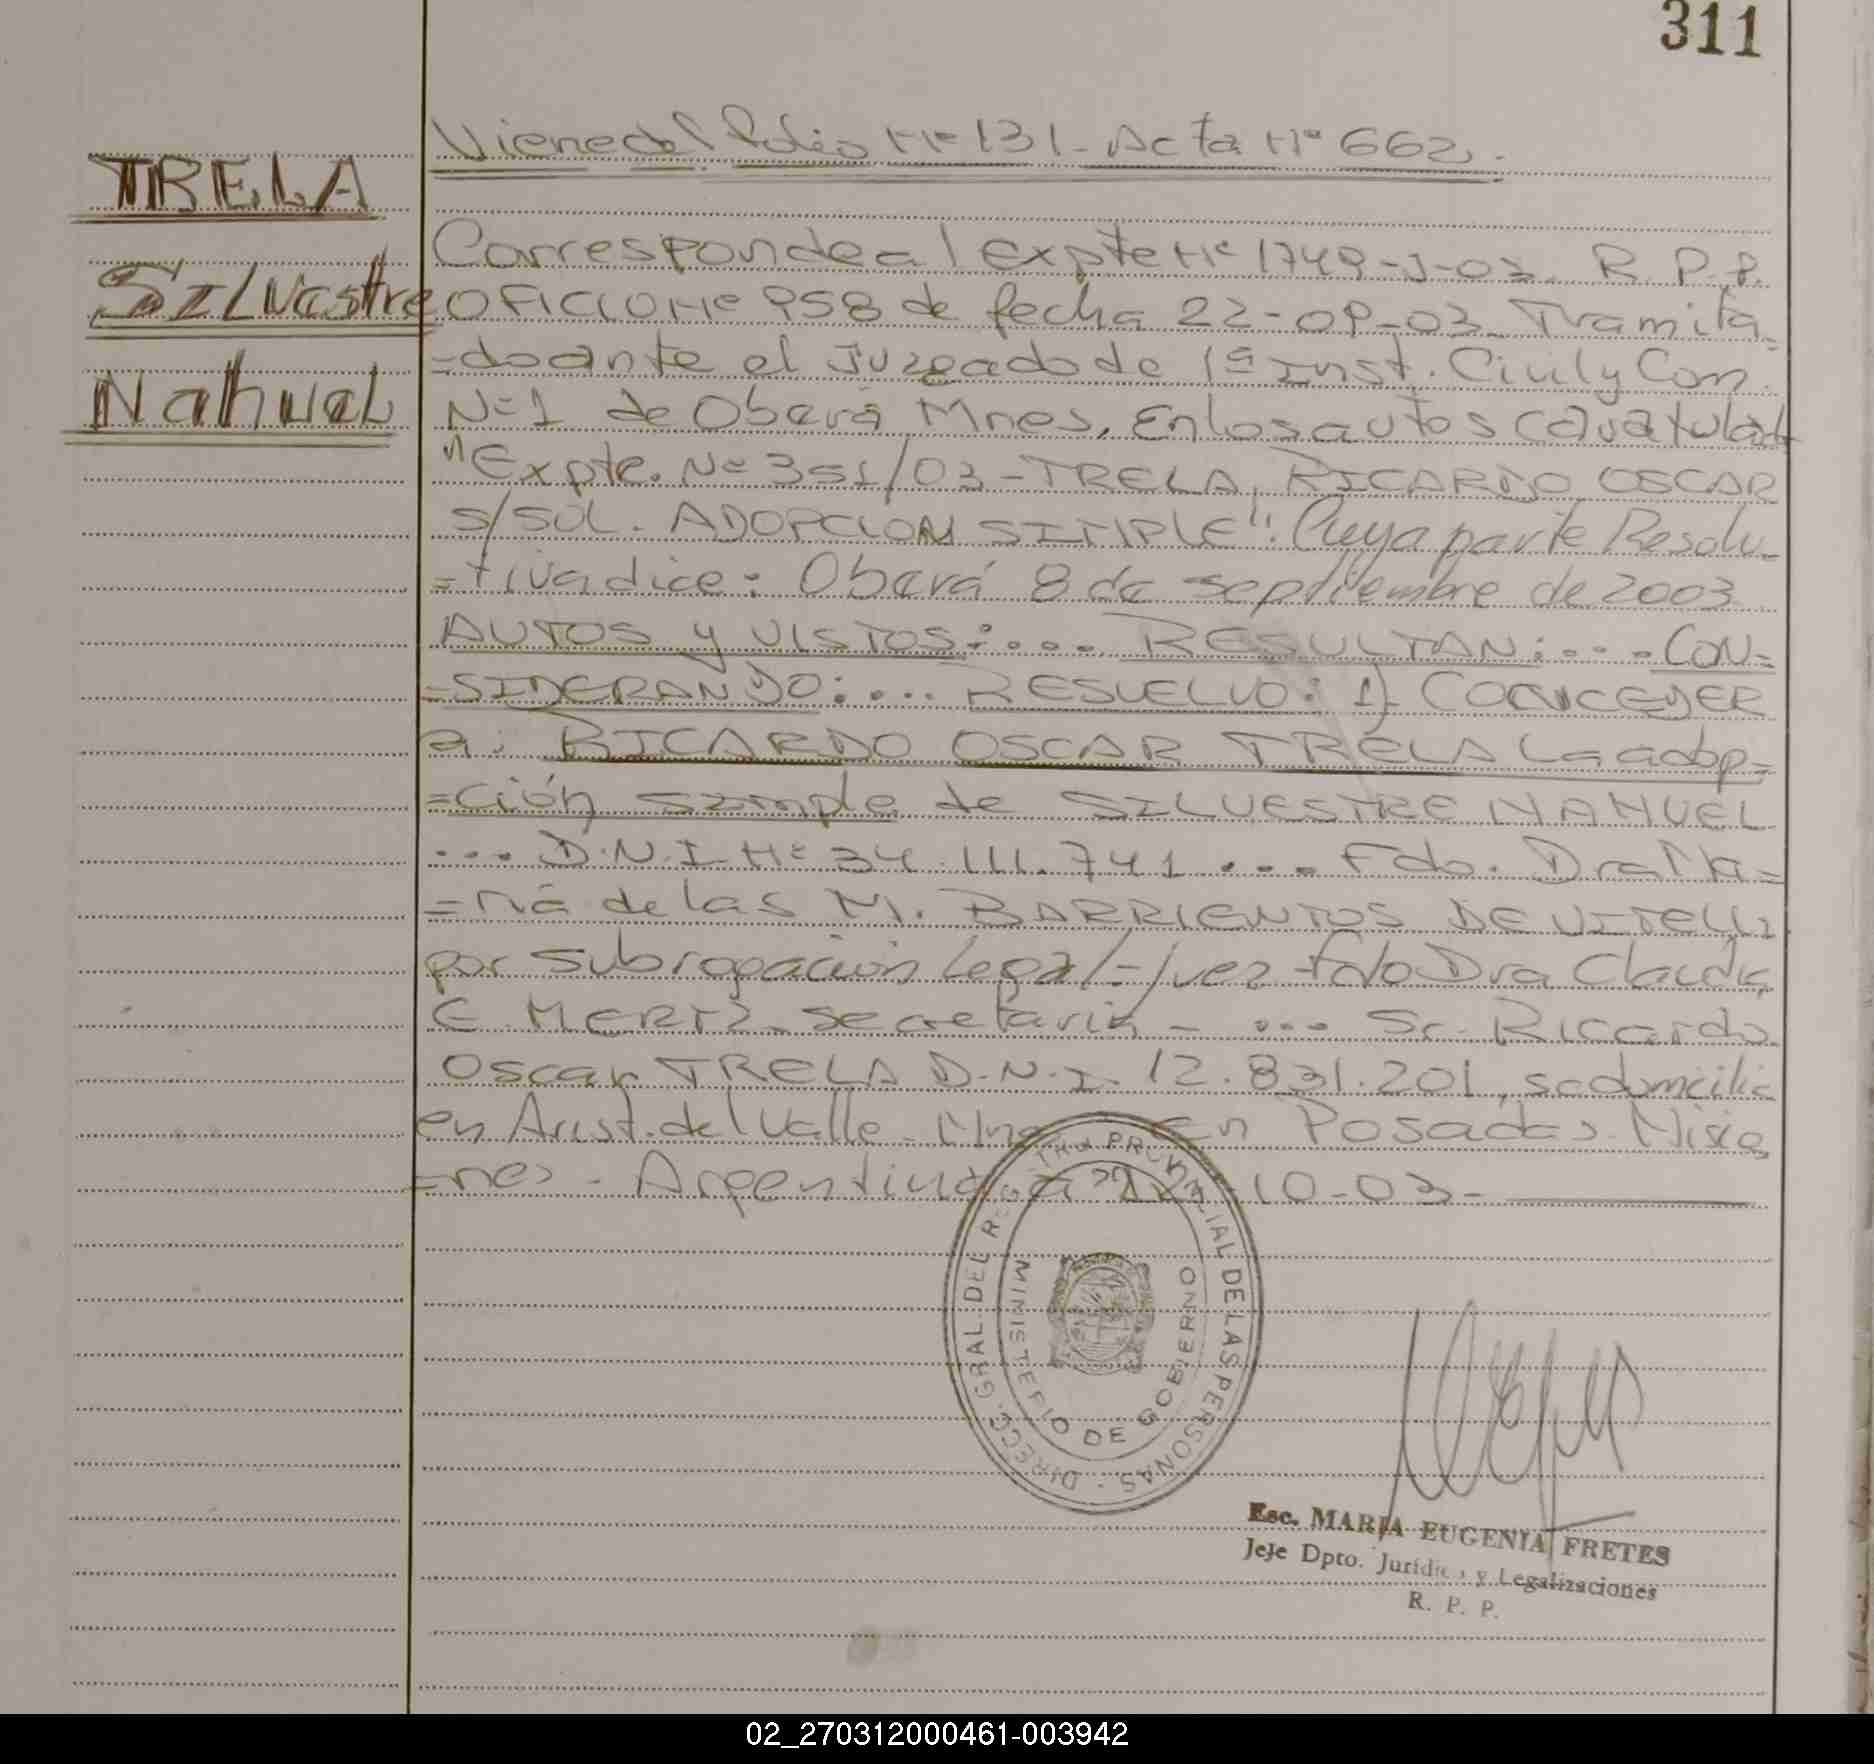 311
Viene del folio Nº 131 - Acta Nº 662.
TRELA
Silvestre
Nahuel
Corresponde al Expte Nº 1749-J-03. R.P.P.
OFICIO Nº 958 de fecha 22-09-03 Tramita
=do ante el Juzgado de 1ª Inst. Civil y Com.
Nº 1 de Oberá Mnes, En los autos caratulado
"Expte. Nº 351/03 - TRELA, RICARDO OSCAR
s/SOL. ADOPCION SIMPLE": Cuya parte Resolu-
=tiva dice: Oberá 8 de septiembre de 2003
AUTOS y VISTOS:.... RESULTAN:.... CON=
=SIDERANDO:.... RESUELVO: 1) CONCEDER
a: RICARDO OSCAR TRELA La adop=
=ción simple de SILVESTRE NAHUEL
... D.N.I. Nº 34.111.741 .... Fdo. Dra Ma=
=ria de las M. BARRIENTOS DE VITELLI
por subrogación Legal - Juez - fdo Dra Claudia
E. MERTZ - secretaria - ... Sr. Ricardo
Oscar TRELA D.N.I. 12.831.201, se domicilia
en Arist. del Valle - Mnes En Posadas - Misio
=nes - Argentina a -10-03-
DIRECC. GRAL. DEL REGISTRO PROVINCIAL DE LAS PERSONAS
MINISTERIO DE GOBIERNO
Esc. MARIA EUGENIA FRETES
Jefe Dpto. Jurídico y Legalizaciones
R. P. P.
02_270312000461-003942